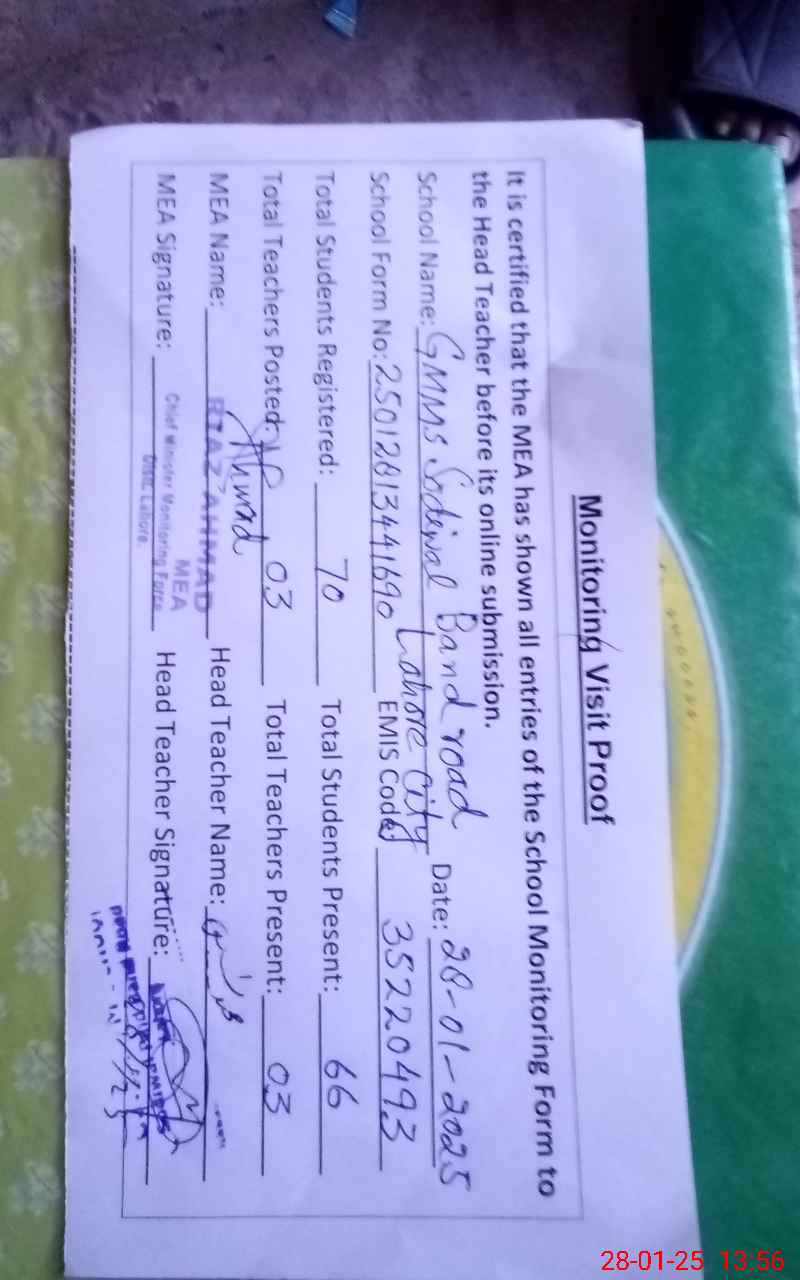 Monitoring Visit Proof
It is certified that the MEA has shown all entries of the School Monitoring Form to
the Head Teacher before its online submission.
School Name: GMMS Sodiwal Band road Lahore City Date: 28-01-2025
School Form No: 25012813441690 EMIS Code: 35220493
Total Students Registered: 70 Total Students Present: 66
Total Teachers Posted: 03 Total Teachers Present: 03
MEA Name: Ahmad RIAZ AHMAD Head Teacher Name:
MEA
MEA Signature: Chief Minister Monitoring Force Head Teacher Signature:
Distt. Lahore.
28-01-25 13:56